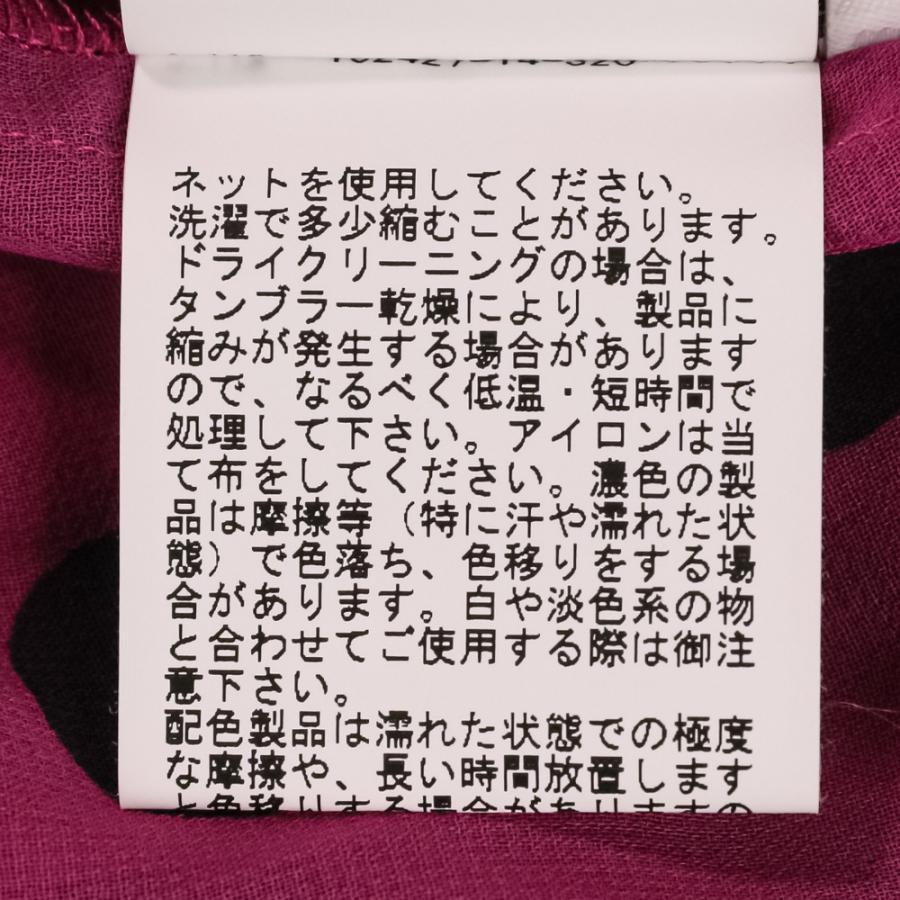 ネットを使用してください。
洗濯で多少縮むことがあります。
ドライクリーニングの場合は、
タンブラー乾燥により、製品に
縮みが発生する場合があります
ので、なるべく低温・短時間で
処理して下さい。アイロンは当
て布をしてください。濃色の製
品は摩擦等（特に汗や濡れた状
態）で色落ち、色移りをする場
合があります。白や淡色系の物
と合わせてご使用する際は御注
意下さい。
配色製品は濡れた状態での極度
な摩擦や、長い時間放置します
と色移りする場合がありますの